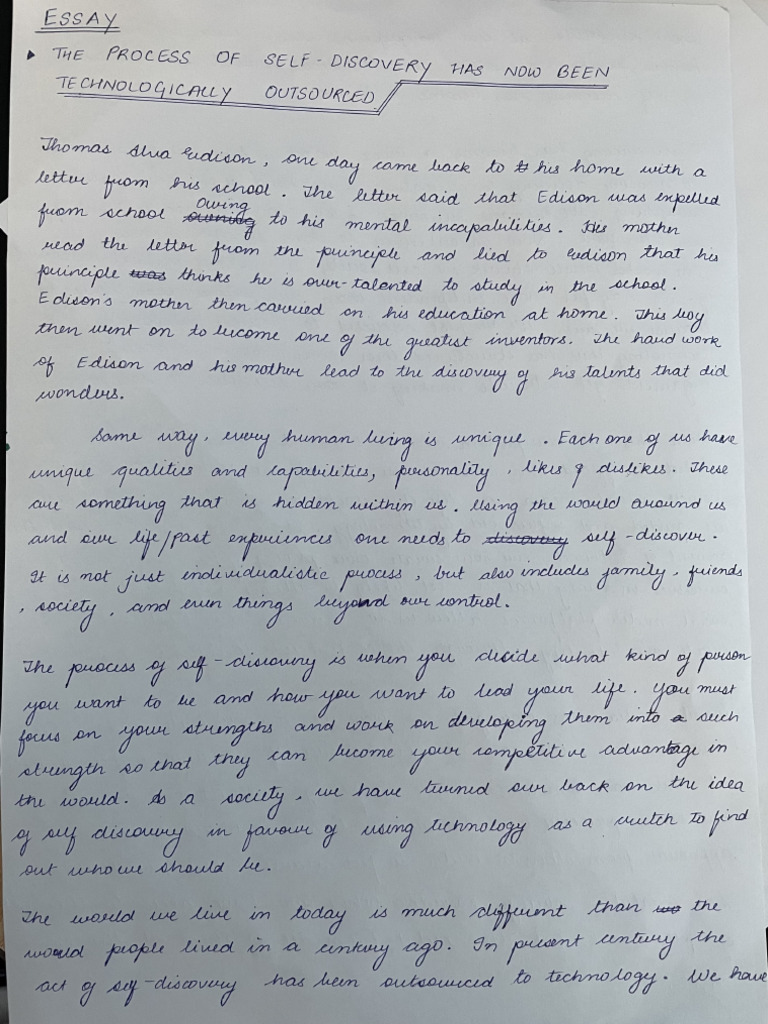 ESSAY
▸ THE PROCESS OF SELF-DISCOVERY HAS NOW BEEN
TECHNOLOGICALLY OUTSOURCED
Thomas Alva Eudison, one day came back to his home with a
letter from his school. The letter said that Edison was expelled
from school owing to his mental incapabilities. His mother
read the letter from the principle and lied to Eudison that his
principle thinks he is over-talented to study in the school.
Edison's mother then carried on his education at home. This boy
then went on to become one of the greatest inventors. The hard work
of Edison and his mother lead to the discovery of his talents that did
wonders.
Same way, every human being is unique. Each one of us have
unique qualities and capabilities, personality, likes & dislikes. These
are something that is hidden within us. Using the world around us
and our life/past experiences one needs to self-discover.
It is not just individualistic process, but also includes family, friends
, society, and even things beyond our control.
The process of self-discovery is when you decide what kind of person
you want to be and how you want to lead your life. You must
focus on your strengths and work on developing them into such
strength so that they can become your competitive advantage in
the world. As a society, we have turned our back on the idea
of self discovery in favour of using technology as a crutch to find
out who we should be.
The world we live in today is much different than the
world people lived in a century ago. In present century the
act of self-discovery has been outsourced to technology. We have